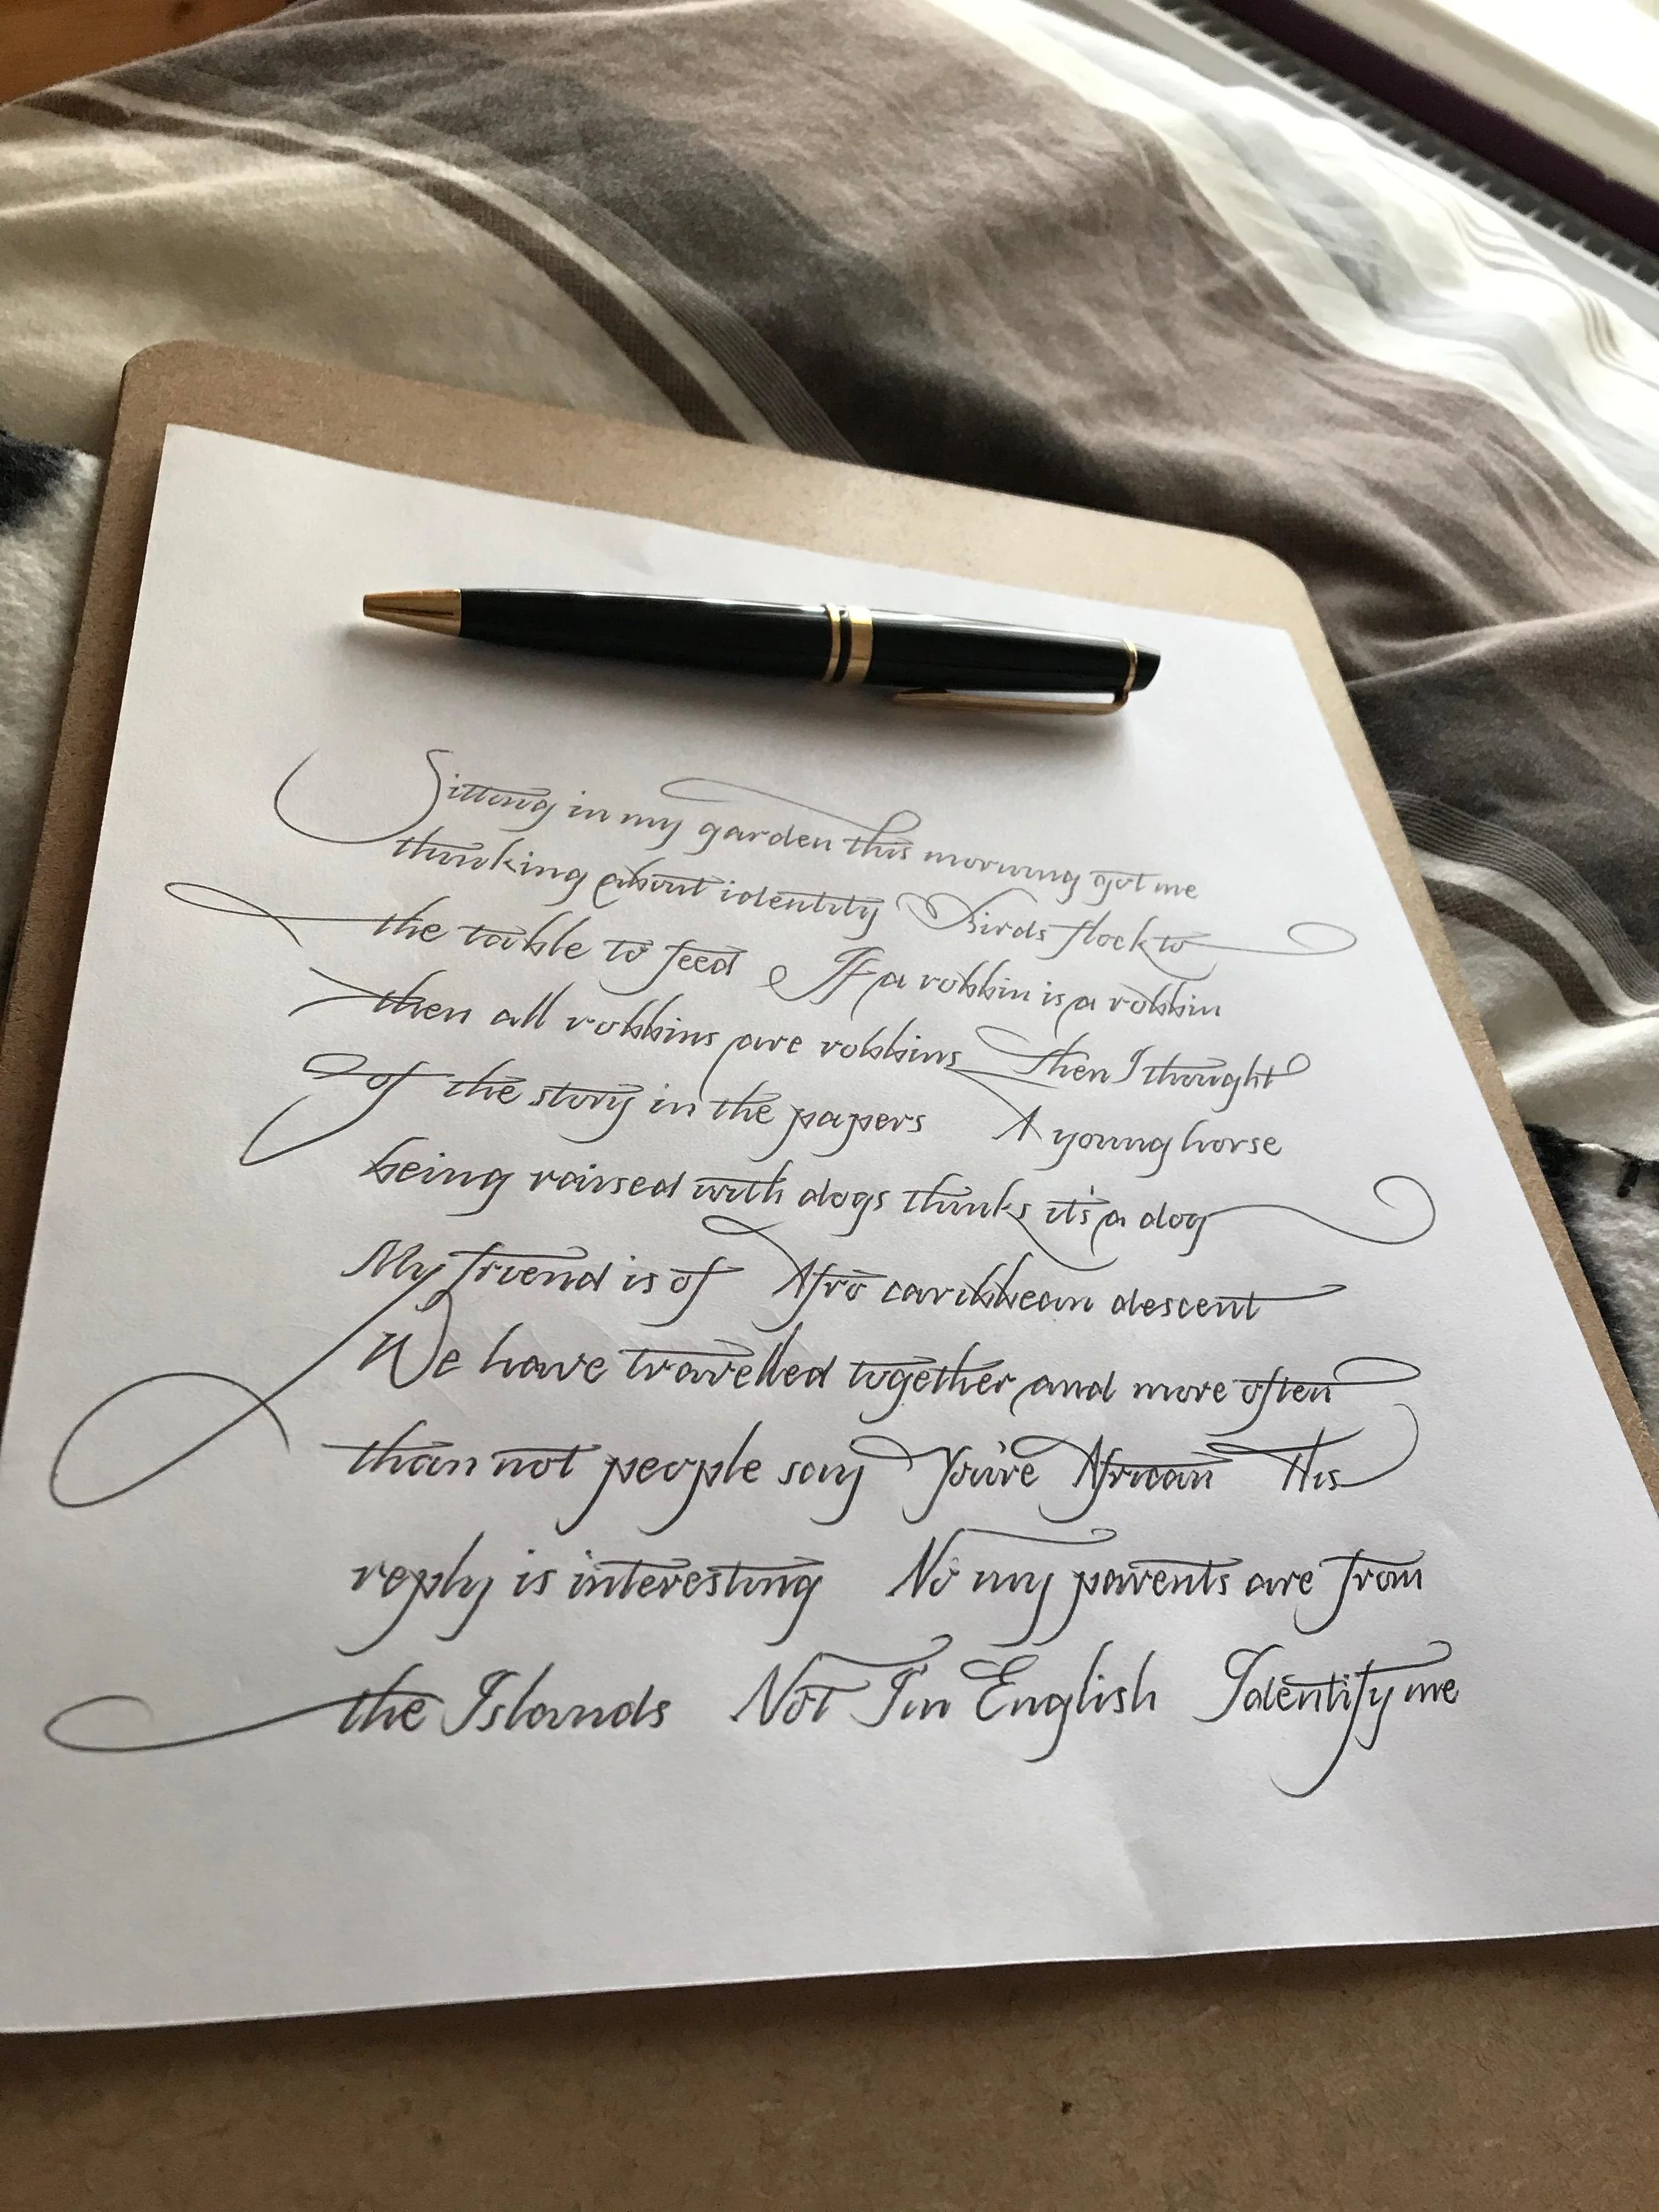 Sitting in my garden this morning got me
thinking about identity Birds flock to
the table to feed If a robbin is a robbin
then all robbins are robbins Then I thought
of the story in the papers A young horse
being raised with dogs thinks it's a dog
My friend is of Afro caribbean descent
We have travelled together and more often
than not people say You're African His
reply is interesting No my parents are from
the Islands Not I'm English Identify me